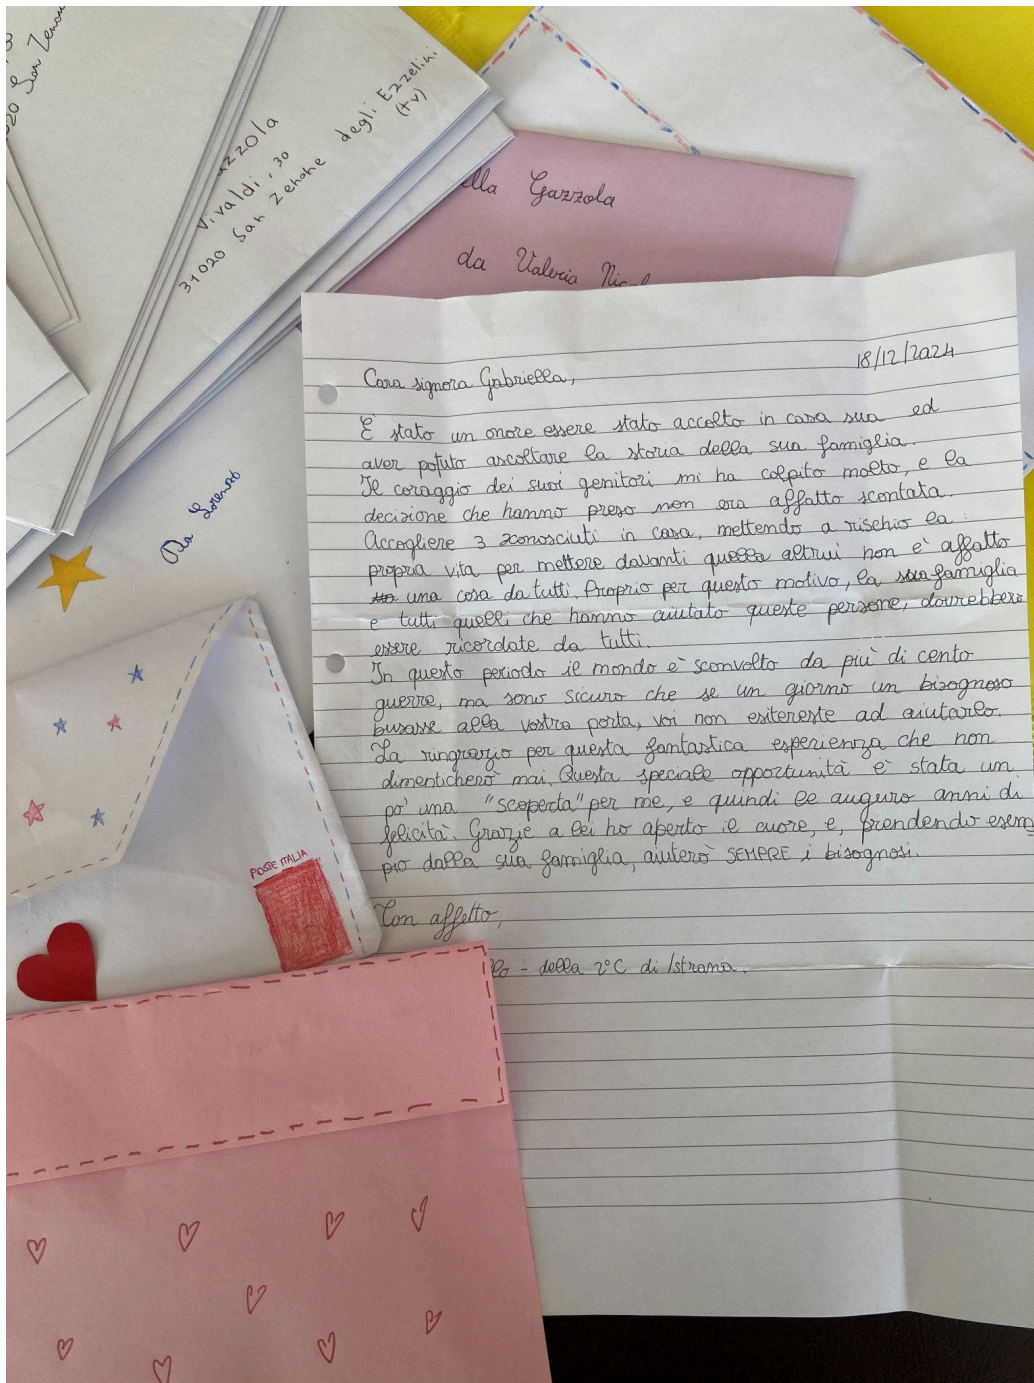 20 San Zenon
azzola
Vivaldi, 30
31020 San Zenone degli Ezzelini
(tv)
lla Gazzola
da Valeria
Da Lorenzo
POSTE ITALIA
18/12/2024
Cara signora Gabriella,
È stato un onore essere stato accolto in casa sua ed
aver potuto ascoltare la storia della sua famiglia.
Il coraggio dei suoi genitori mi ha colpito molto, e la
decisione che hanno preso non era affatto scontata.
Accogliere 3 sconosciuti in casa, mettendo a rischio la
propria vita per mettere davanti quella altrui non è affatto
una cosa da tutti. Proprio per questo motivo, la sua famiglia
e tutti quelli che hanno aiutato queste persone, dovrebbero
essere ricordate da tutti.
In questo periodo il mondo è sconvolto da più di cento
guerre, ma sono sicuro che se un giorno un bisognoso
busasse alla vostra porta, voi non esitereste ad aiutarlo.
La ringrazio per questa fantastica esperienza che non
dimenticherò mai. Questa speciale opportunità è stata un
pò una "scoperta" per me, e quindi le auguro anni di
felicità. Grazie a lei ho aperto il cuore, e, prendendo esem
pio dalla sua famiglia, aiuterò SEMPRE i bisognosi.
Con affetto,
llo - della 2°C di Istrana.